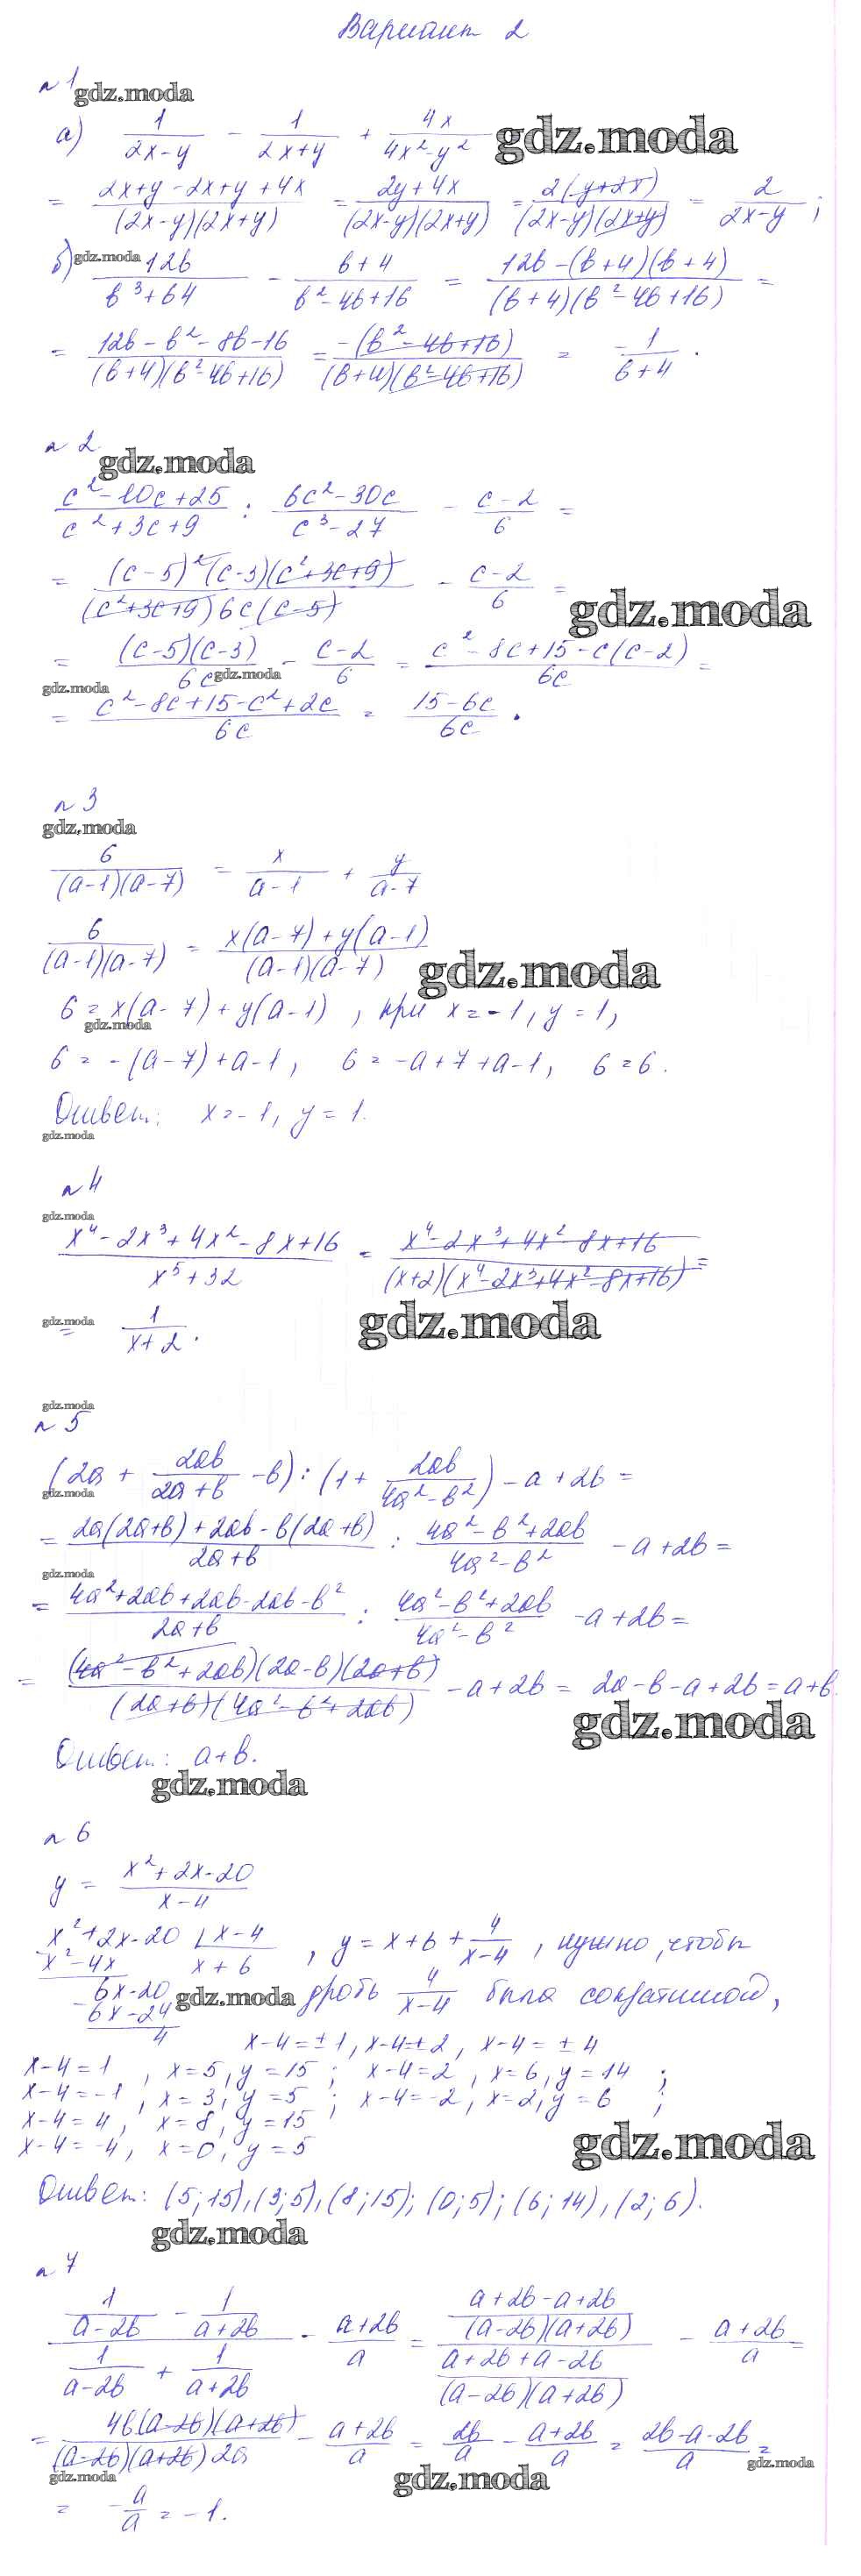 Вариант 2
n 1
gdz.moda
а) 1/(2x-y) - 1/(2x+y) + 4x/(4x²-y²)
gdz.moda
= (2x+y-2x+y+4x)/((2x-y)(2x+y)) = (2y+4x)/((2x-y)(2x+y)) = 2(y+2x)/((2x-y)(2x+y)) = 2/(2x-y);
gdz.moda
б) 12b/(b³+64) - (b+4)/(b²-4b+16) = (12b-(b+4)(b+4))/((b+4)(b²-4b+16)) =
= (12b-b²-8b-16)/((b+4)(b²-4b+16)) = -(b²-4b+16)/((b+4)(b²-4b+16)) = -1/(b+4).
n 2
gdz.moda
(c²-10c+25)/(c²+3c+9) : (6c²-30c)/(c³-27) - (c-2)/6 =
= (c-5)²(c-3)(c²+3c+9)/((c²+3c+9)6c(c-5)) - (c-2)/6 =
gdz.moda
= (c-5)(c-3)/6c - (c-2)/6 = (c²-8c+15-c(c-2))/6c =
gdz.moda
gdz.moda
= (c²-8c+15-c²+2c)/6c = (15-6c)/6c.
n 3
gdz.moda
6/((a-1)(a-7)) = x/(a-1) + y/(a-7)
6/((a-1)(a-7)) = (x(a-7)+y(a-1))/((a-1)(a-7))
gdz.moda
6 = x(a-7)+y(a-1), при x=-1, y=1,
gdz.moda
6 = -(a-7)+a-1, 6 = -a+7+a-1, 6=6.
Ответ: x=-1, y=1.
gdz.moda
n 4
gdz.moda
(x⁴-2x³+4x²-8x+16)/(x⁵+32) = (x⁴-2x³+4x²-8x+16)/((x+2)(x⁴-2x³+4x²-8x+16)) =
gdz.moda
= 1/(x+2).
gdz.moda
gdz.moda
n 5
(2a + 2ab/(2a+b) - b) : (1 + 2ab/(4a²-b²)) - a + 2b =
gdz.moda
= (2a(2a+b)+2ab-b(2a+b))/(2a+b) : (4a²-b²+2ab)/(4a²-b²) - a+2b =
gdz.moda
= (4a²+2ab+2ab-2ab-b²)/(2a+b) : (4a²-b²+2ab)/(4a²-b²) - a+2b =
= (4a²-b²+2ab)(2a-b)(2a+b)/((2a+b)(4a²-b²+2ab)) - a+2b = 2a-b-a+2b = a+b.
gdz.moda
Ответ: a+b.
gdz.moda
n 6
y = (x²+2x-20)/(x-4)
x²+2x-20 | x-4
x²-4x x+6 , y = x+6+4/(x-4), нужно, чтобы
6x-20
gdz.moda
- 6x-24 дробь 4/(x-4) была сократимой,
4
x-4=±1, x-4=±2, x-4=±4
x-4=1, x=5, y=15; x-4=2, x=6, y=14;
x-4=-1, x=3, y=5; x-4=-2, x=2, y=6;
x-4=4, x=8, y=15
x-4=-4, x=0, y=5
gdz.moda
Ответ: (5;15), (3;5), (8;15); (0;5); (6;14), (2;6).
gdz.moda
n 7
(1/(a-2b) - 1/(a+2b))/(1/(a-2b) + 1/(a+2b)) - (a+2b)/a = ((a+2b-a+2b)/((a-2b)(a+2b)))/((a+2b+a-2b)/((a-2b)(a+2b))) - (a+2b)/a =
= 4b(a-2b)(a+2b)/((a-2b)(a+2b)2a) - (a+2b)/a = 2b/a - (a+2b)/a = (2b-a-2b)/a =
gdz.moda
gdz.moda
gdz.moda
= -a/a = -1.